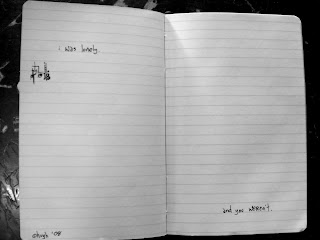 i was lonely.
and you weren't.
'08